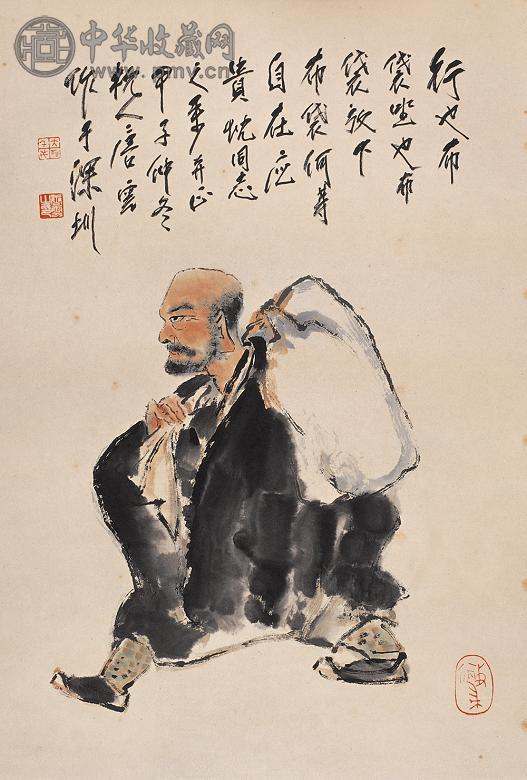 中华收藏网
行也布
袋坐也布
袋放下
布袋何等
自在 应
贵忱同志
之 并正
甲子仲冬
杭人唐雲
作于深圳